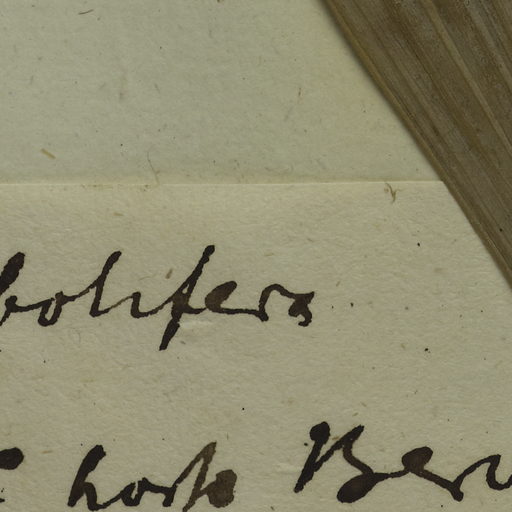 bolifera
hort Ber